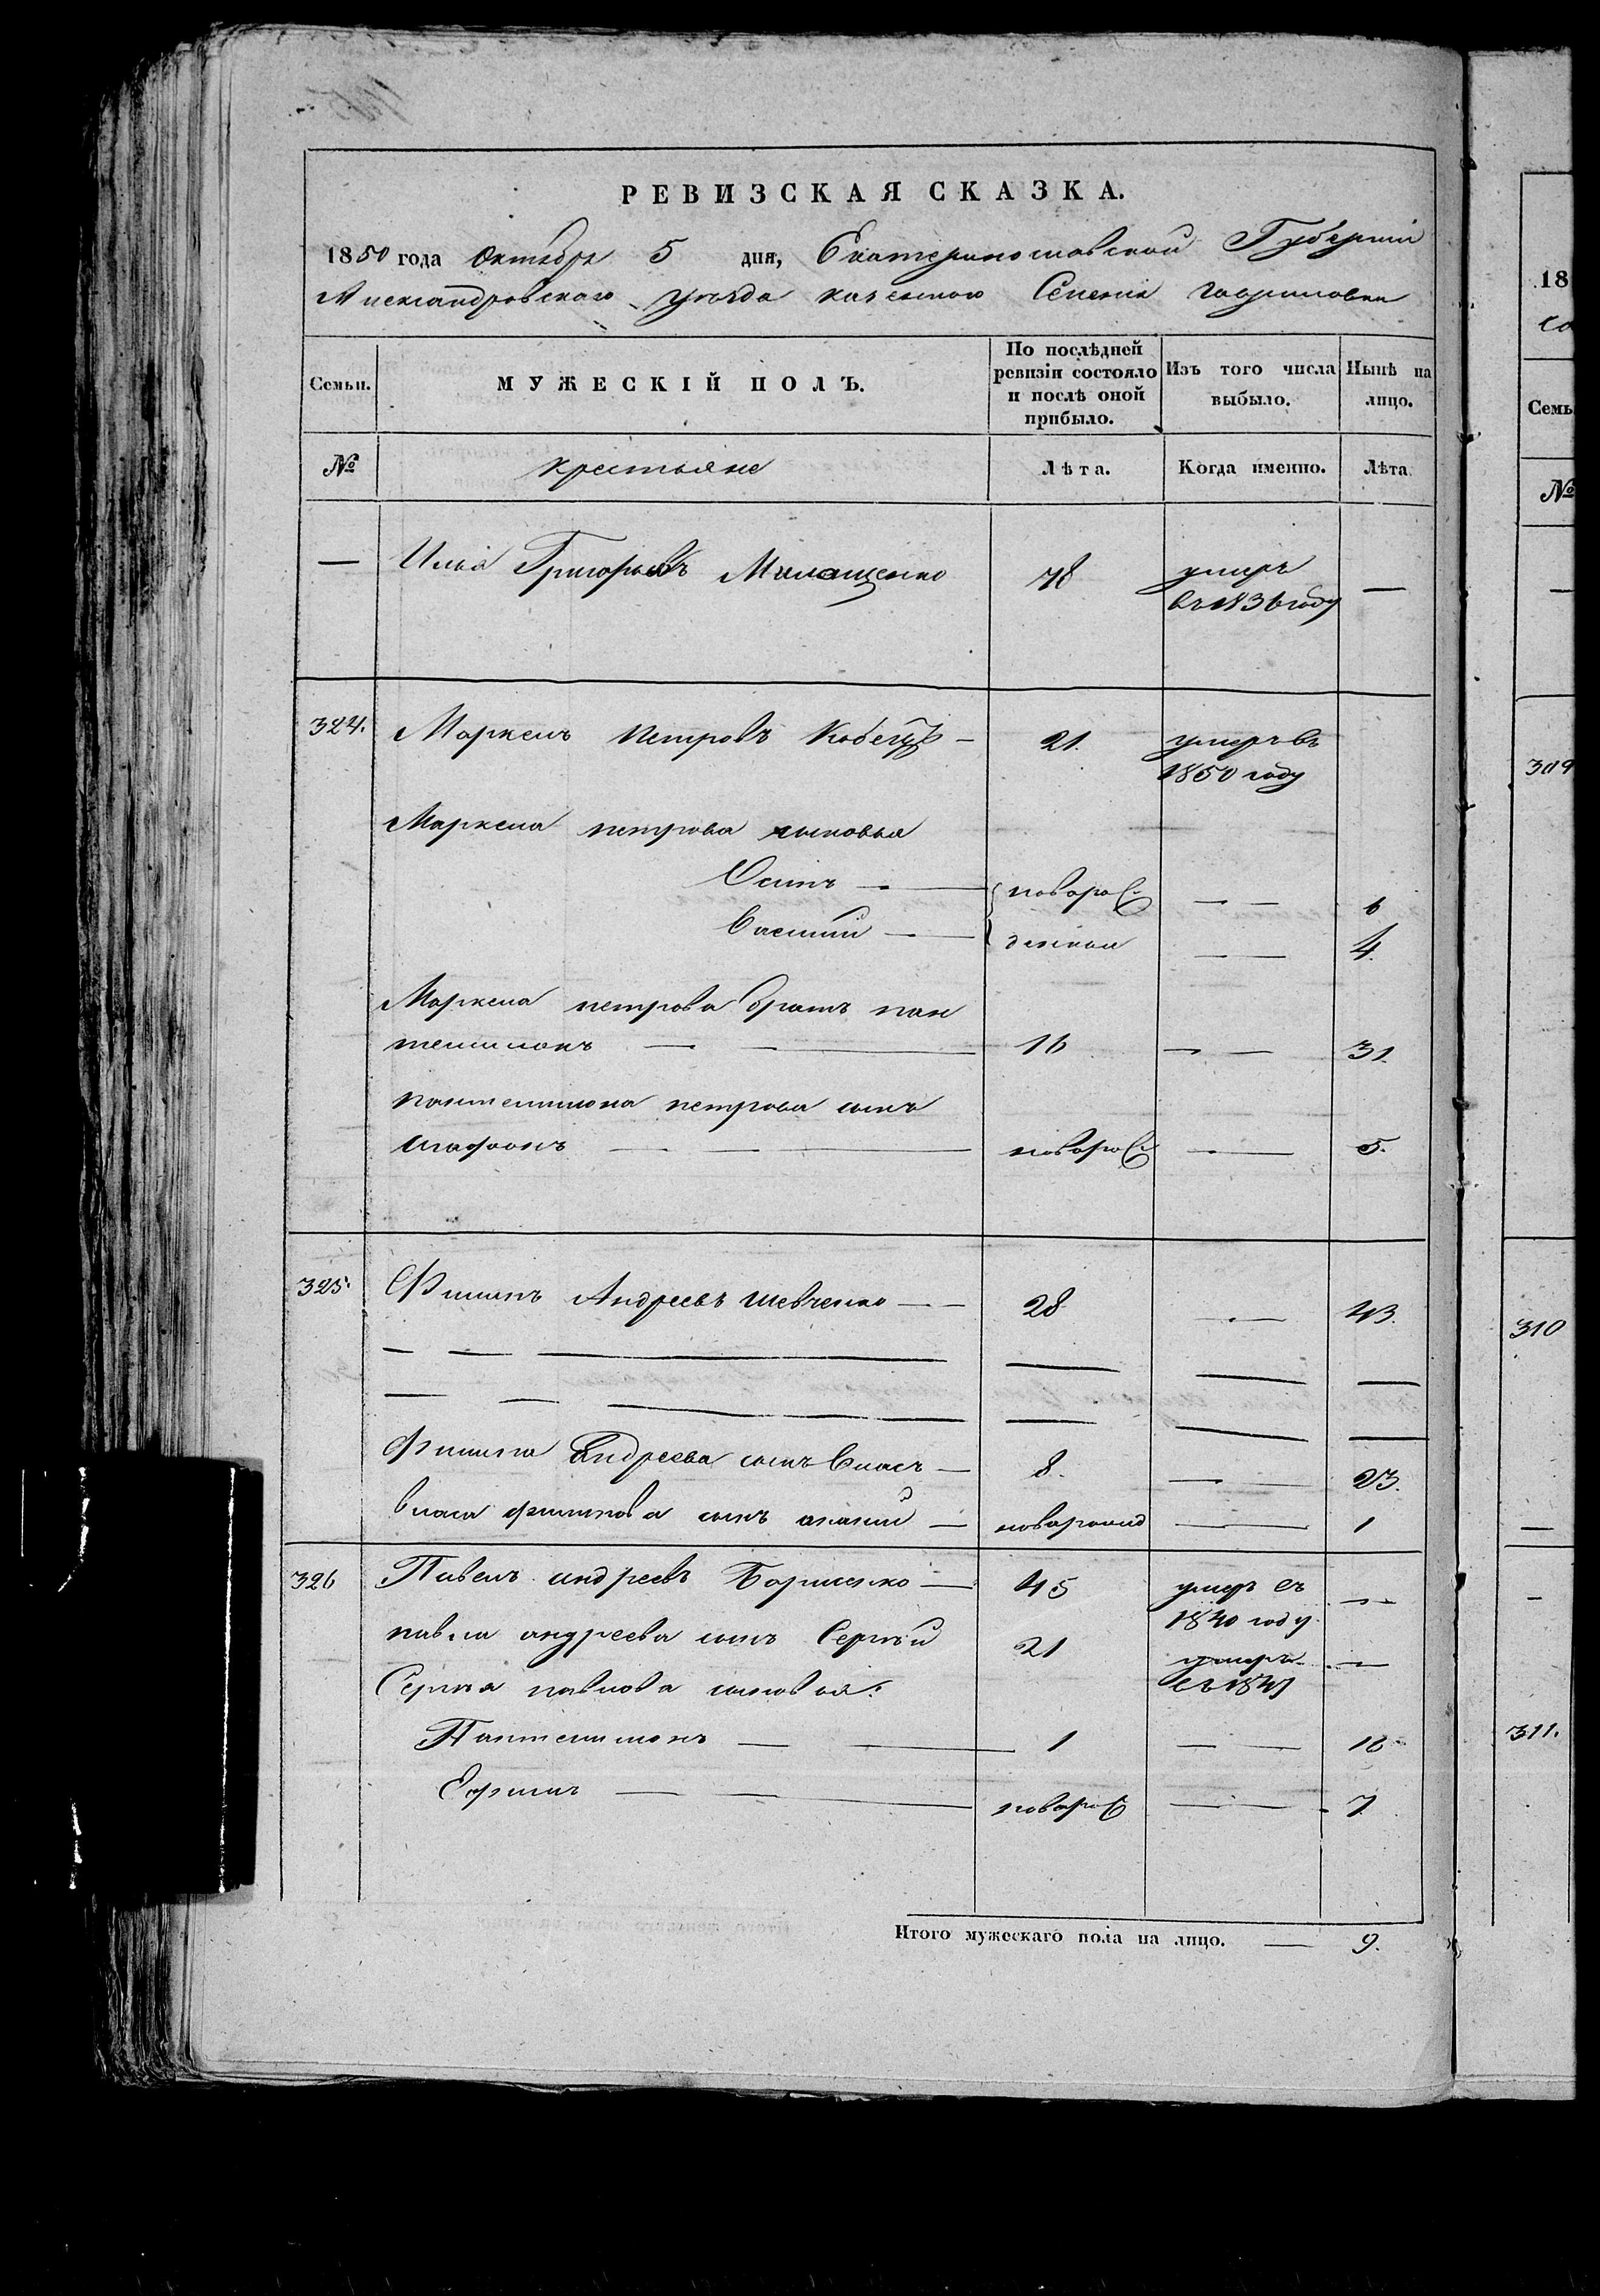 РЕВИЗСКАЯ СКАЗКА.
1850 года Октября 5 дня, Екатеринославской Губерніи
Александровскаго уѣзда казенного Селенія Гавриловки
Семьи. МУЖЕСКІЙ ПОЛЪ. По послѣдней ревизіи состояло и послѣ оной прибыло. Изъ того числа выбыло. Нынѣ на лицо.
№ крестьяне Лѣта. Когда именно. Лѣта.
— Илья Григорьевъ 78 умеръ —
въ 1836 году
324. Маркелъ Петровъ Кобецъ — 21. умеръ въ
1850 году
Маркела петрова сыновья
Осипъ — новоро — 6
Василій — жденныя — 4.
Маркела петрова братъ пан
телимонъ — 16 — 31.
пантелимона петрова сынъ
Агафонъ — новоро — 5.
325. Филипъ Андреевъ шевченко — 28 — 43.
Филипа Андреева сынъ Власъ — 8. — 23.
власа филипова сынъ — новорожд — 1
326 Павелъ андреевъ Борисенко — 45 умеръ въ —
1840 году.
павла андреева сынъ Сергѣй 21 умеръ —
Сергѣя павлова сыновья:
Пантелимонъ — 1 — 16
Ефимъ — новоро — 7
Итого мужескаго пола на лицо. — 9.
18
Семь
№
309
310
311.